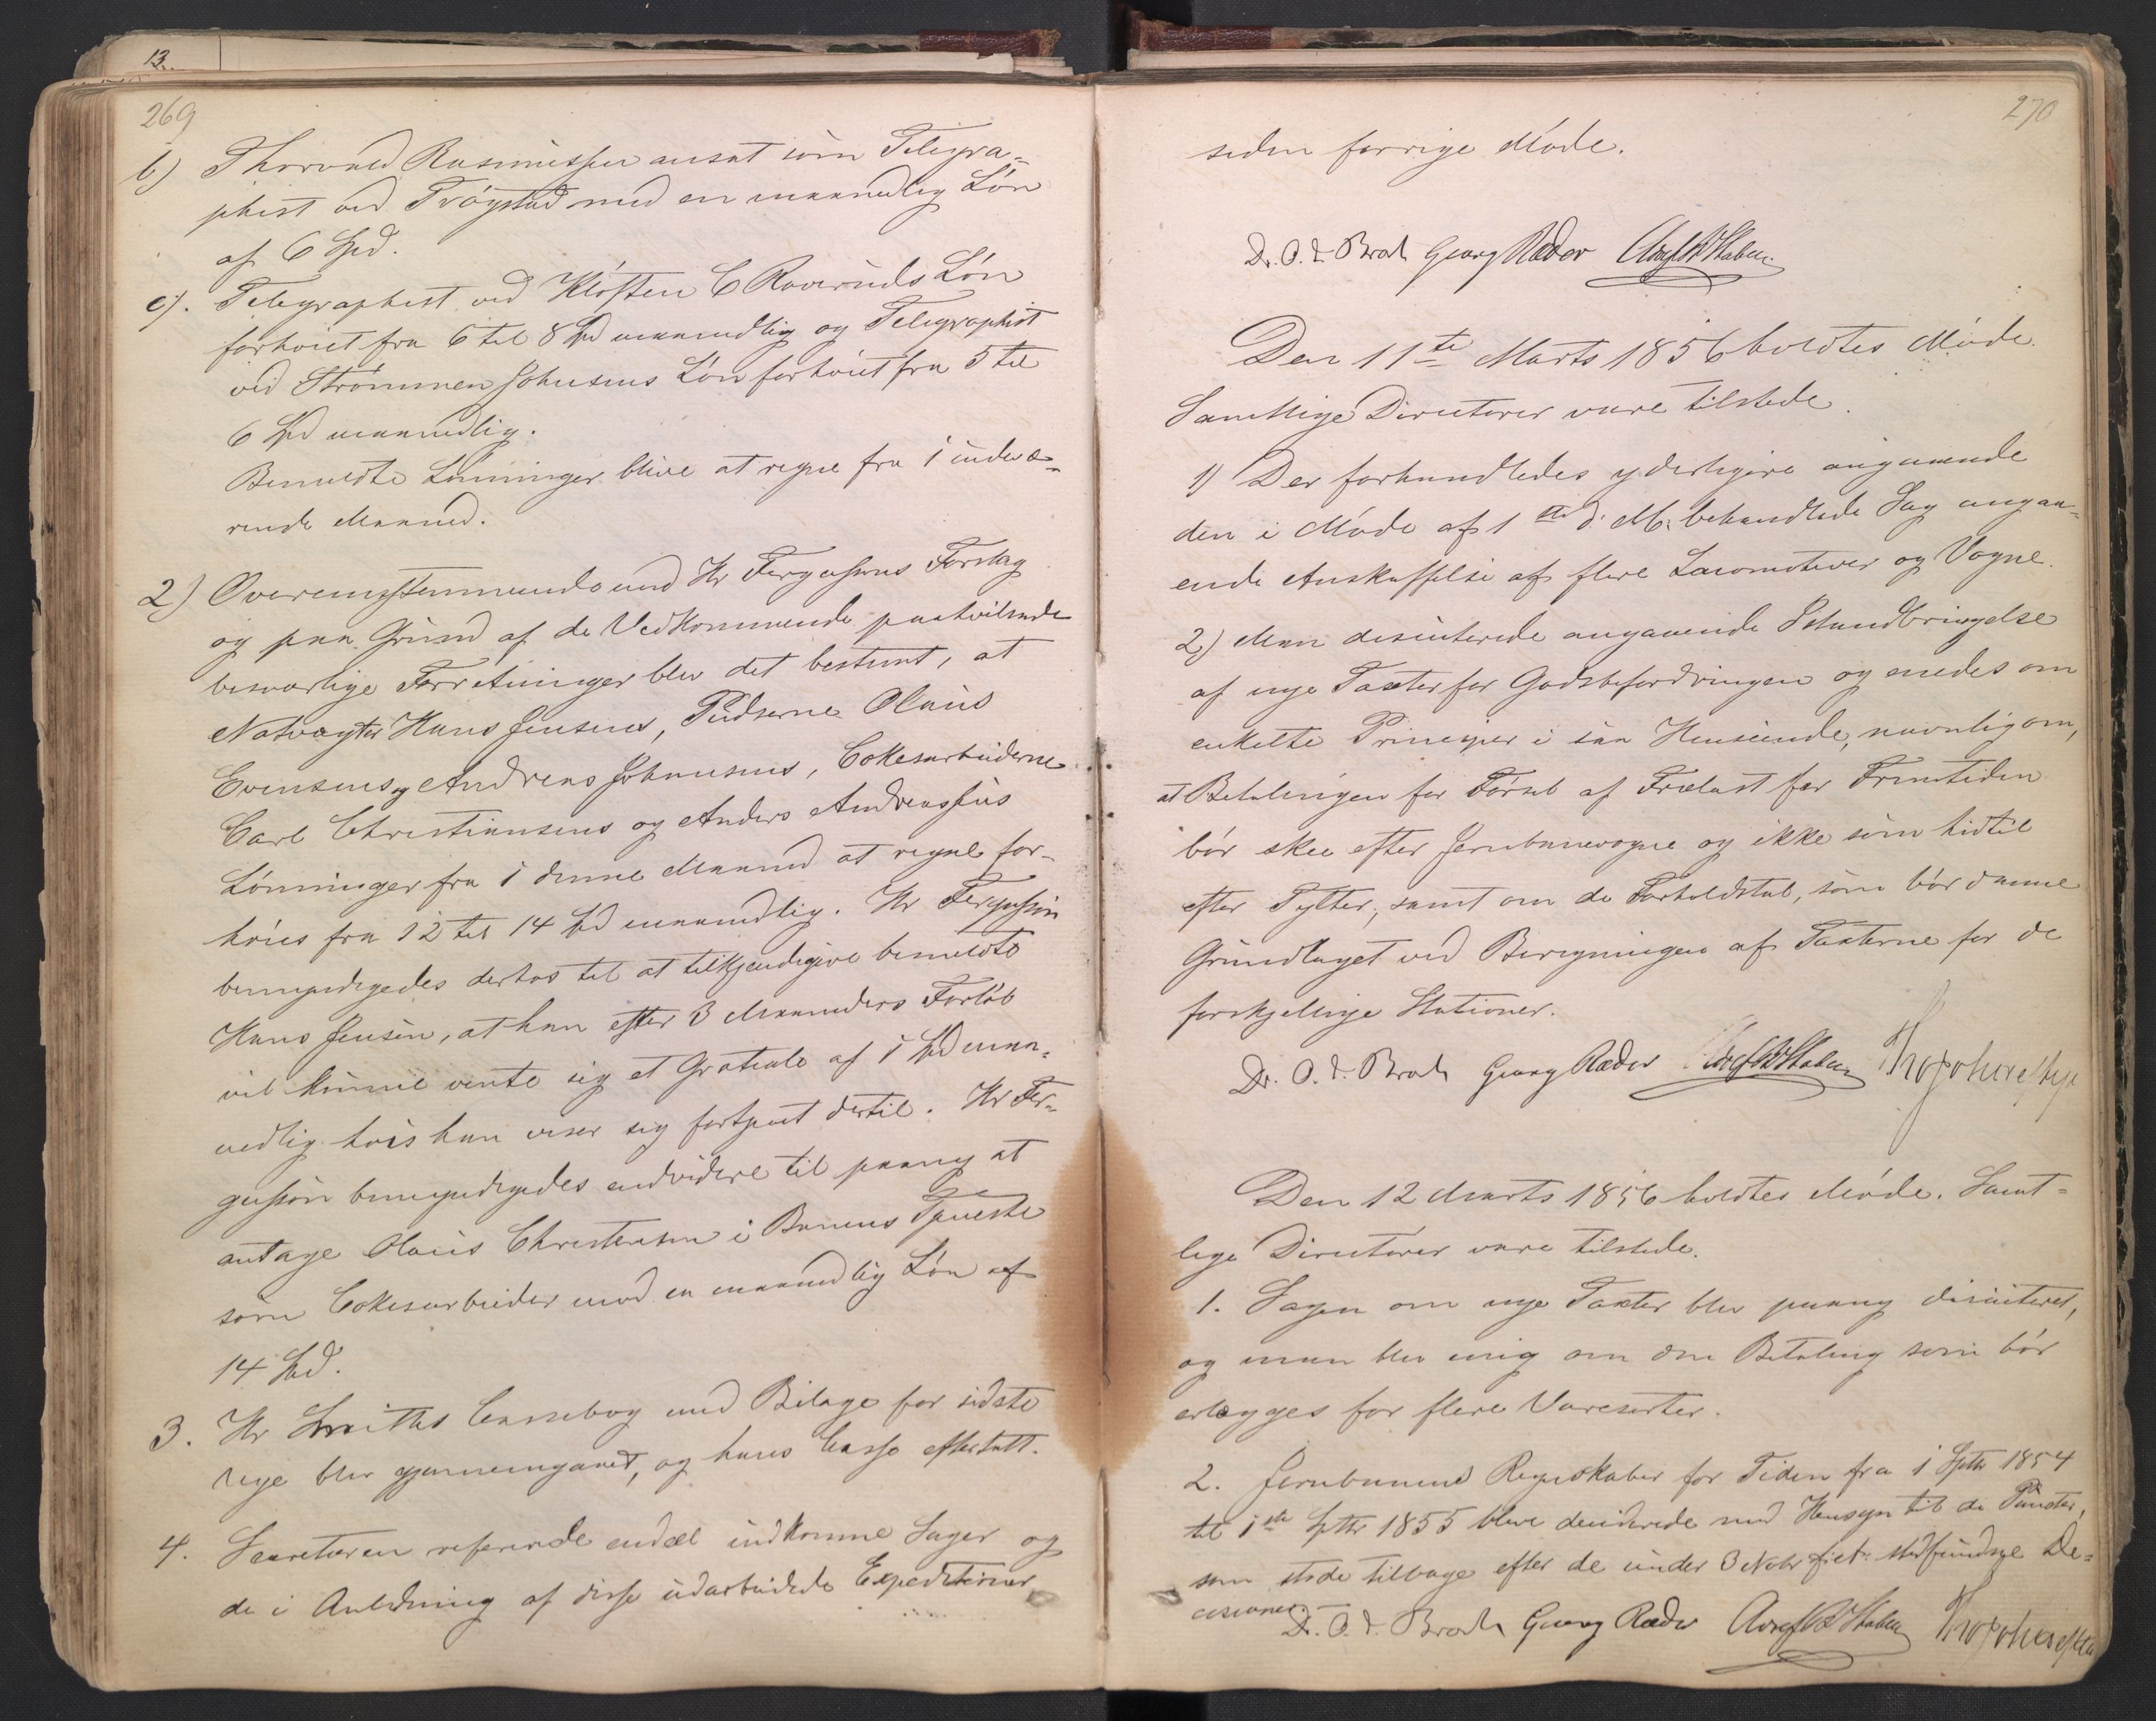 13.
269
b) Thorvald Rasmussen ansat som Telegra-
phist ved Trøgstad med en maanedlig Løn
af 6 Spd.
c). Telegraphist ved Kløften C Ruveruds Løn
forhøiet fra 6 til 8 Spd maanedlig og Telegraphist
ved Strømmen Johnsens Løn forhøiet fra 5 til
6 Spd maanedlig.
Bemeldte Lønninger blive at regne fra 1 indevæ-
rende Maaned.
2) Overensstemmende med Hr Fergussons Forslag
og paa Grund af de Vedkommende paahvilende
besværlige Forretninger blev det bestemt, at
Natvagter Hans Jensens, Pudserne Olaus
Evensens og Andreas Johnsens, Cokesarbeiderne
Carl Christiansens og Anders Andreassens
Lønninger fra 1 denne Maaned at regne for-
høies fra 12 til 14 Spd maanedlig. Hr Fergusson
bemyndigedes derhos til at tilkjendegive bemeldte
Hans Jensen, at han efter 3 Maaneders Forløb
vil kunne vente sig et Gratiale af 1 Spd maa-
nedlig hvis han viser sig fortjent dertil. Hr Fer-
gusson bemyndigedes endvidere til paany at
antage Olaus Christensen i Banens Tjeneste
som Cokesarbeider med en maanedlig Løn af
14 Spd.
3. Hr Smiths Cassebog med Bilage for sidste
Uge blev gjennemgaaet, og hans Casse eftertalt.
4. Secretæren refererede endel indkomne Sager og
de i Anledning af disse udarbeidede Expeditioner
270
siden forrige Møde.
Dr. O. J. Broch Georg Ræder
Den 11te Marts 1856 holdtes Møde.
Samtlige Directører vare tilstede.
1) Der forhandledes yderligere angaaende
den i Møde af 1ste d. M. behandlede Sag angaa-
ende Anskaffelse af flere Locomotiver og Vogne.
2) Man discuterede angaaende Istandbringelse
af nye Taxter for Godsbefordringen og enedes om
enkelte Principer i saa Henseende, navnlig om,
at Betalingen for Førsel af Trælast for Fremtiden
bør skee efter Jernbanevogne og ikke som hidtil
efter Tylter, samt om de Forholdstal, som bør danne
Grundlaget ved Beregningen af Taxterne for de
forskjellige Stationer.
Dr. O. J. Broch Georg Ræder
Den 12 Marts 1856 holdtes Møde. Samt-
lige Directører vare tilstede.
1. Sagen om nye Taxter blev paany discuteret,
og man blev enig om den Betaling som bør
erlægges for flere Varesorter.
2. Jernbanens Regnskaber for Tiden fra 1 Septbr 1854
til 1ste Septbr 1855 bleve deciderede med Hensyn til de Puncter,
som stode tilbage efter de under 3 Novbr stedfundne De-
cisioner.
Dr. O. J. Broch Georg Ræder